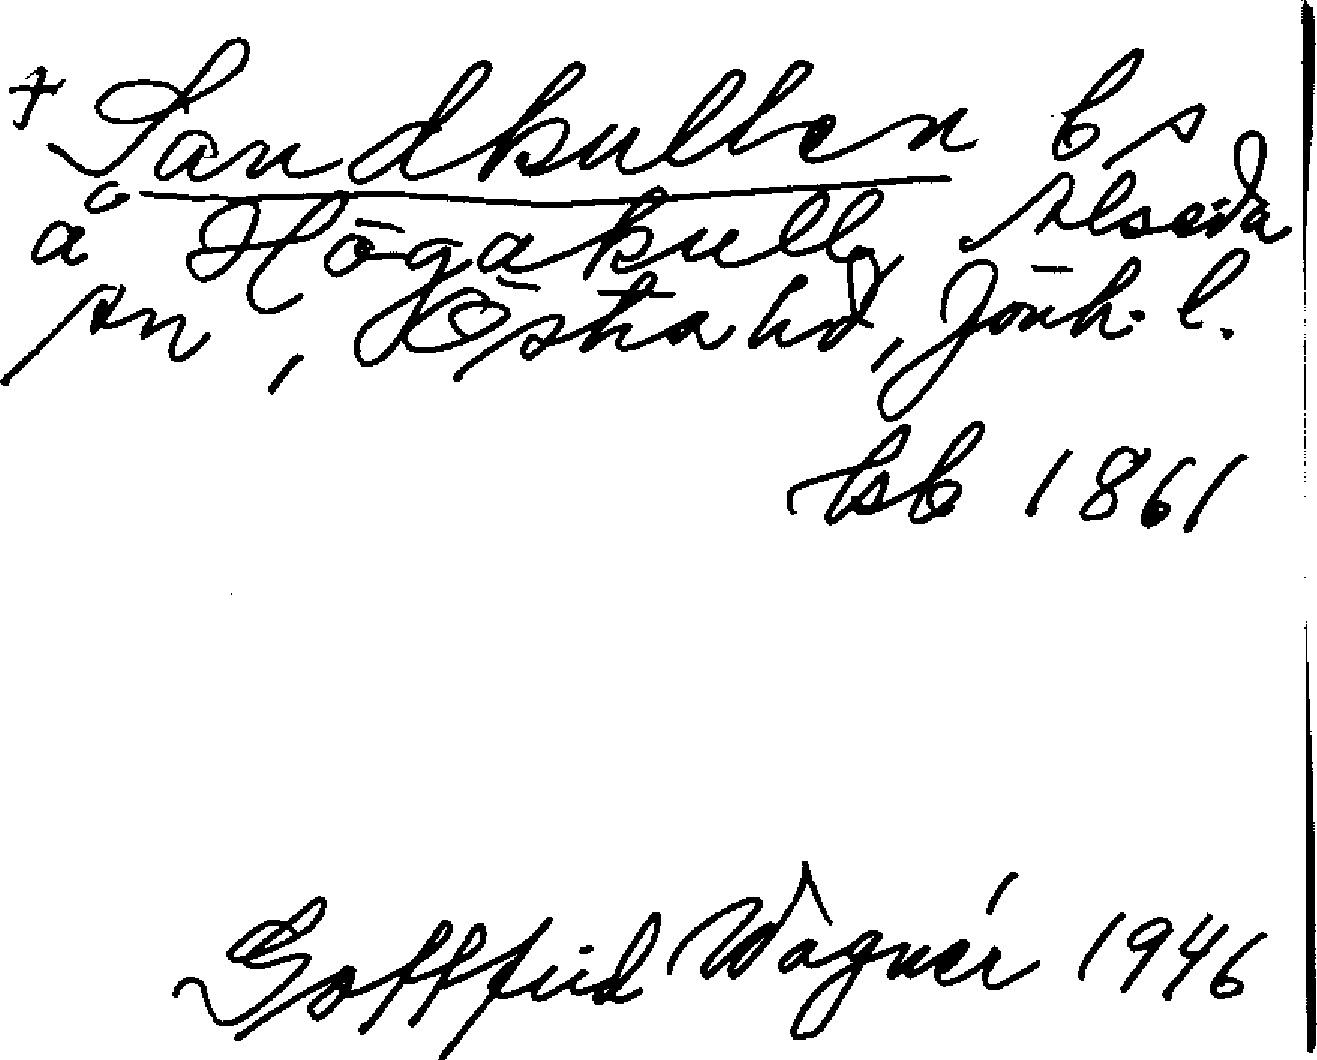 + Sandkullen bs
å Högakull, Alseda
sn, Östra hd, Jönk. l.
hsb 1861
Gottfrid Wagnér 1946